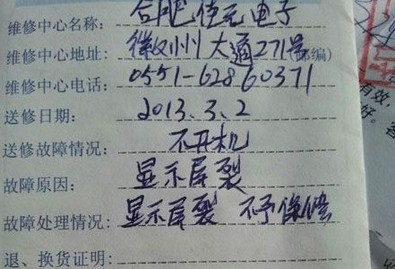 维修中心名称：合肥佳元电子
维修中心地址：徽州大道271号(邮编)
维修中心电话：0551-62860371
送修日期：2013.3.2
送修故障情况：不开机
故障原因：显示屏裂
故障处理情况：显示屏裂 不予保修
退、换货证明：